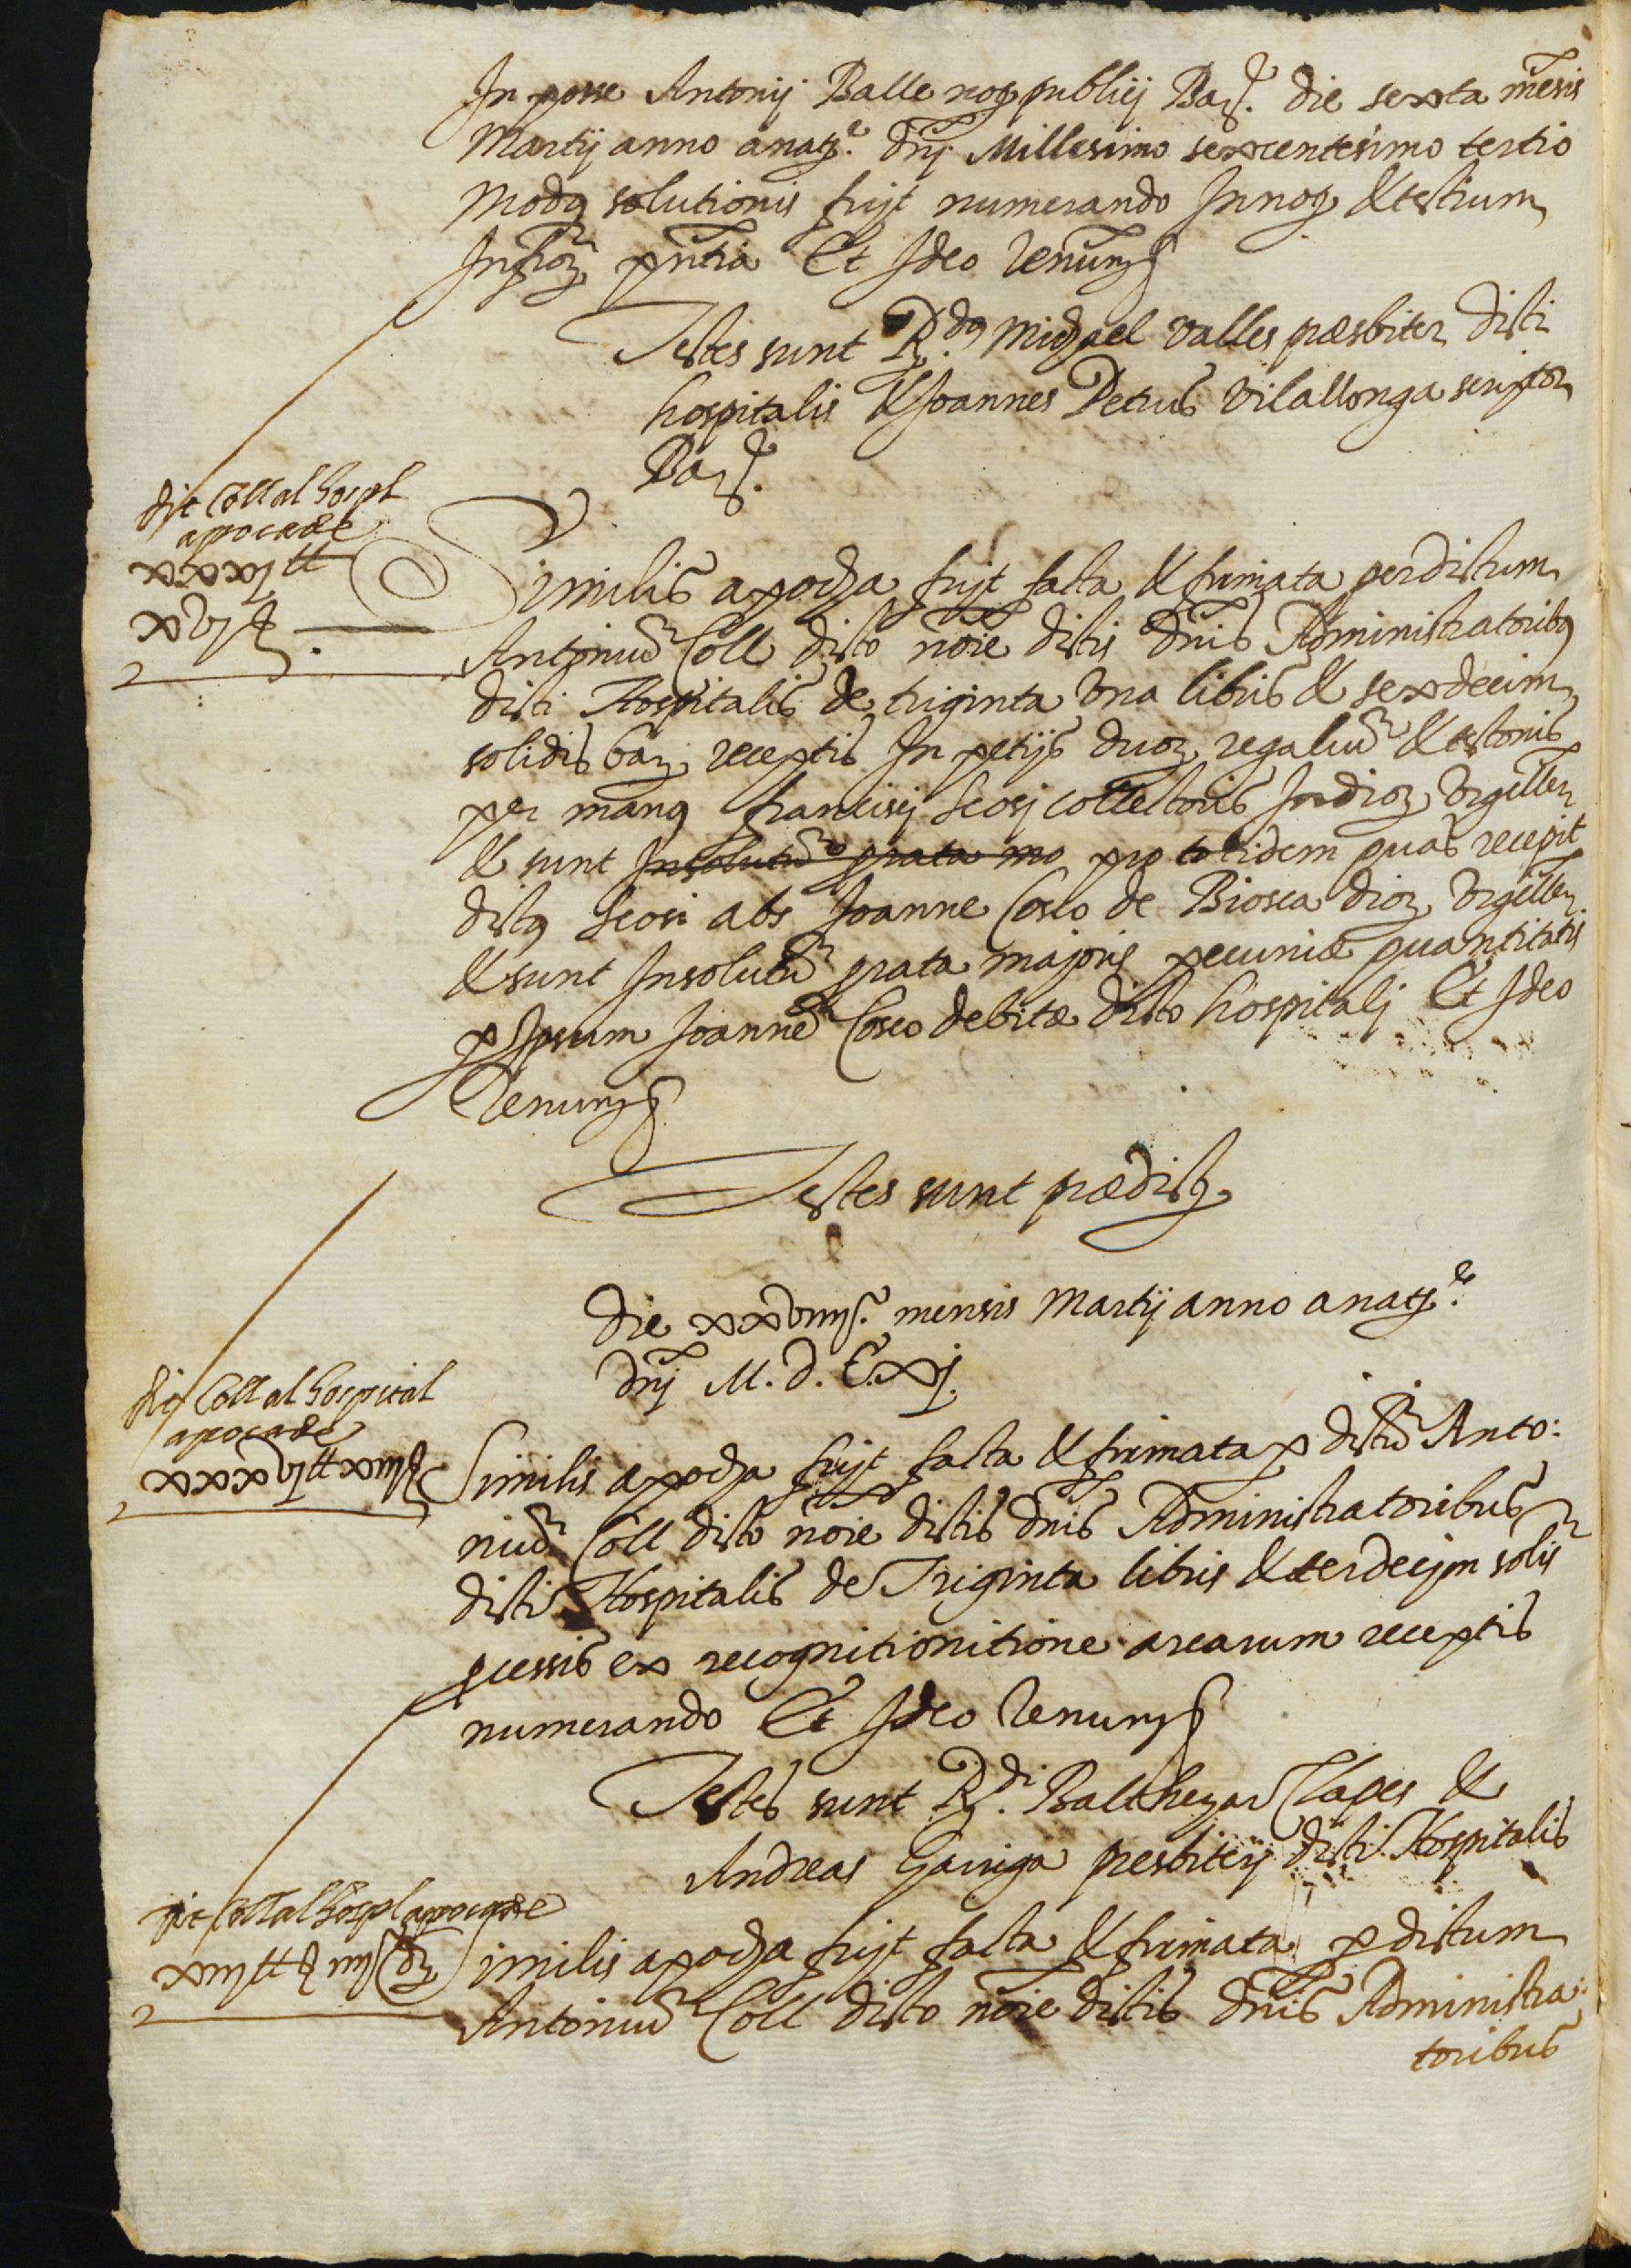 In posse Antonij Balle noṫ publicj Barñ. die sexta mẽsis
Martij anno a natẽ. dñj Millesimo sexcentesimo tertio
modꝰ solutionis fuyt numerando In noṫ & testium
Infror̃ pñtia Et Ideo Renun̄ẽ
Testes sunt R.dus Michael Valles præsbiter dicti
hospitalis & Joannes Petrus Vilallonga scriptor
Barẽ.
dit Coll al hospl
apoca de
xxxj ℔
xvj ß.
Similis apocha fuyt facta & firmata per dictum
Antoniũ Coll dicto nõie dictis dñis Administratoribꝰ
dicti Hospitalis de triginta Vna libris & sexdecim
solidis bar̃ receptis In petijs duor̃ regaliũ & testonis
per manꝰ francisij Scosj collectoris In dioꝫ Vrgelleñ
& sunt Insolutũ prorata mo pro totidem quas recepit
dictꝰ Scosi abs Joanne Cosco de Biosca dioꝫ Vrgelleñ
& sunt Insolutũ prorata majoris pecuniæ quantitatis
ꝑ Ipsum Joannẽ Cosco debitæ dicto hospitalj Et Ideo
Renun̄ẽ
Testes sunt prædictj
die xxviiij. mensis Martij anno a natẽ.
dñj M. d. C. xj.
dit Coll al hospital
apoca de
xxxvj ℔ xiij ß
Similis apocha fuyt facta & firmata ꝑ dictũ Anto:
niũ Coll dicto nõie dictis dñis Administratoribus
dicti Hospitalis de Triginta libris & terdecim solis
ex recognitionitione arcarum receptis
numerando Et Ideo Renun̄ẽ
Testes sunt R.di Balthezar Clapes &
Andreas Garriga presbiterj dicti Hospitalis
dit Coll al hospl apoca de
xiij ℔ iiij ß
Similis apocha fuyt facta & firmata ꝑ dictum
Antoniũ Coll dicto nõie dictis dñis Administra:
toribus